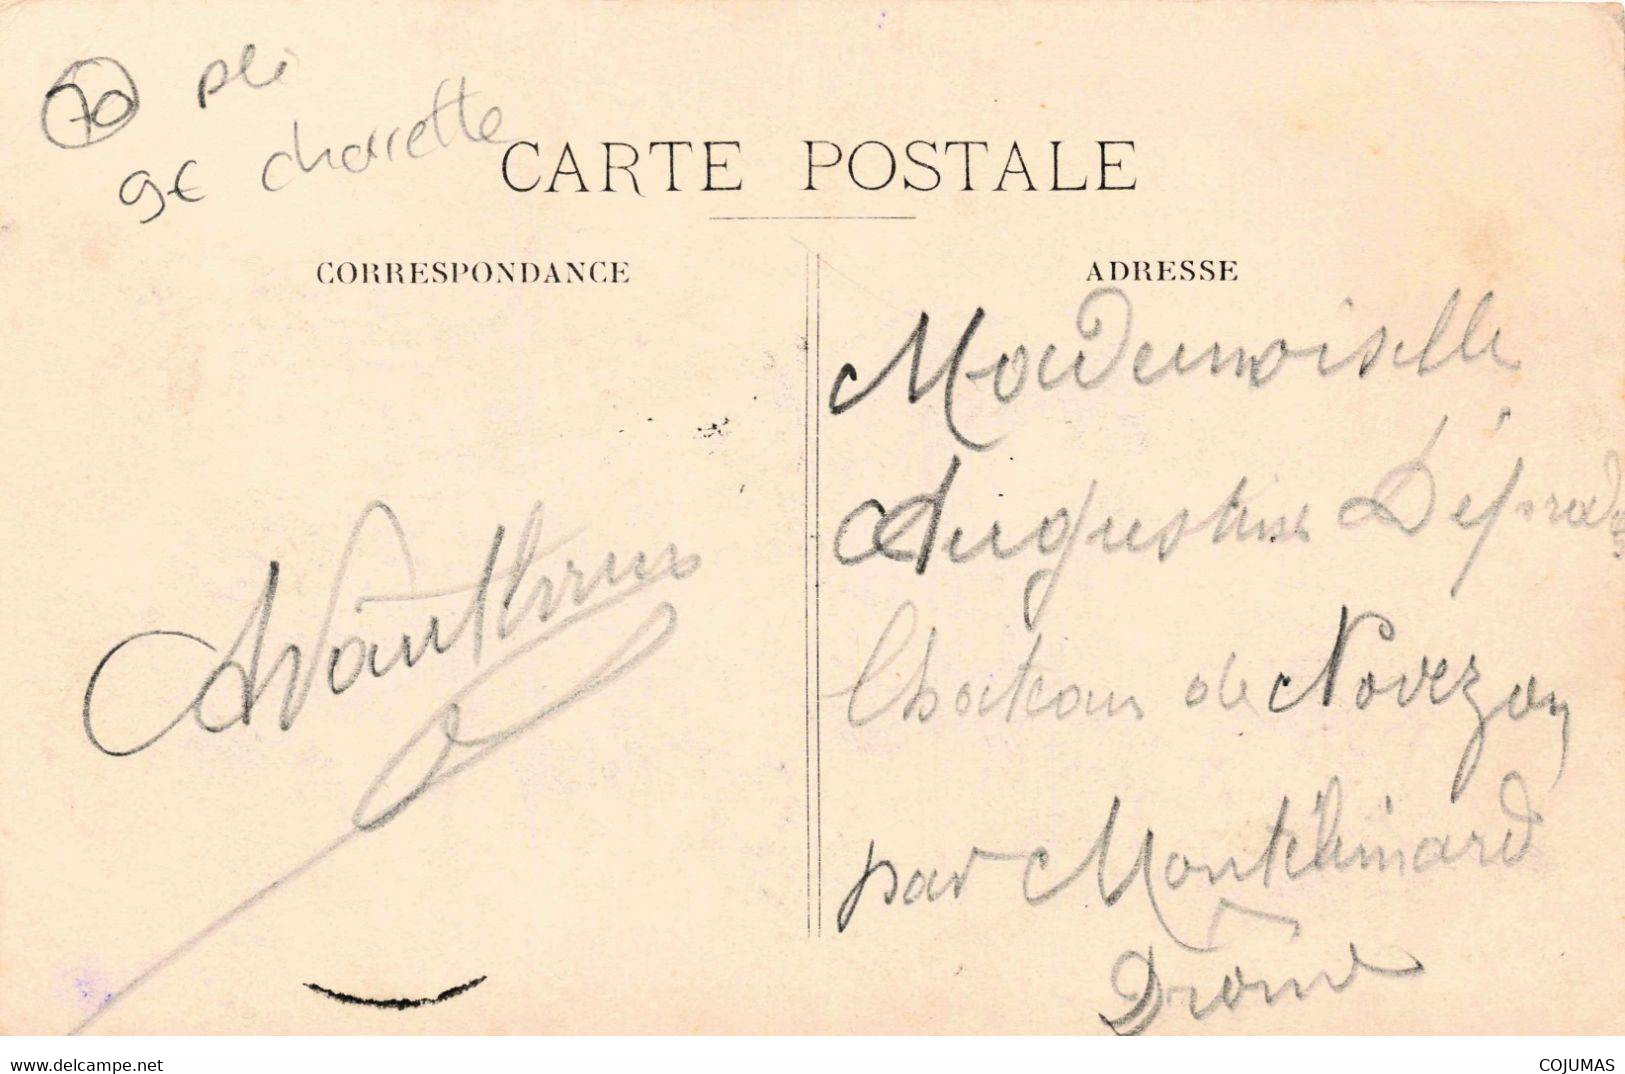 70 pli
9€ charrette
CARTE POSTALE
CORRESPONDANCE
ADRESSE
Mademoiselle
Augustine
Château de Novezan
par Montélimard
Drôme
delcampe.net
COJUMAS